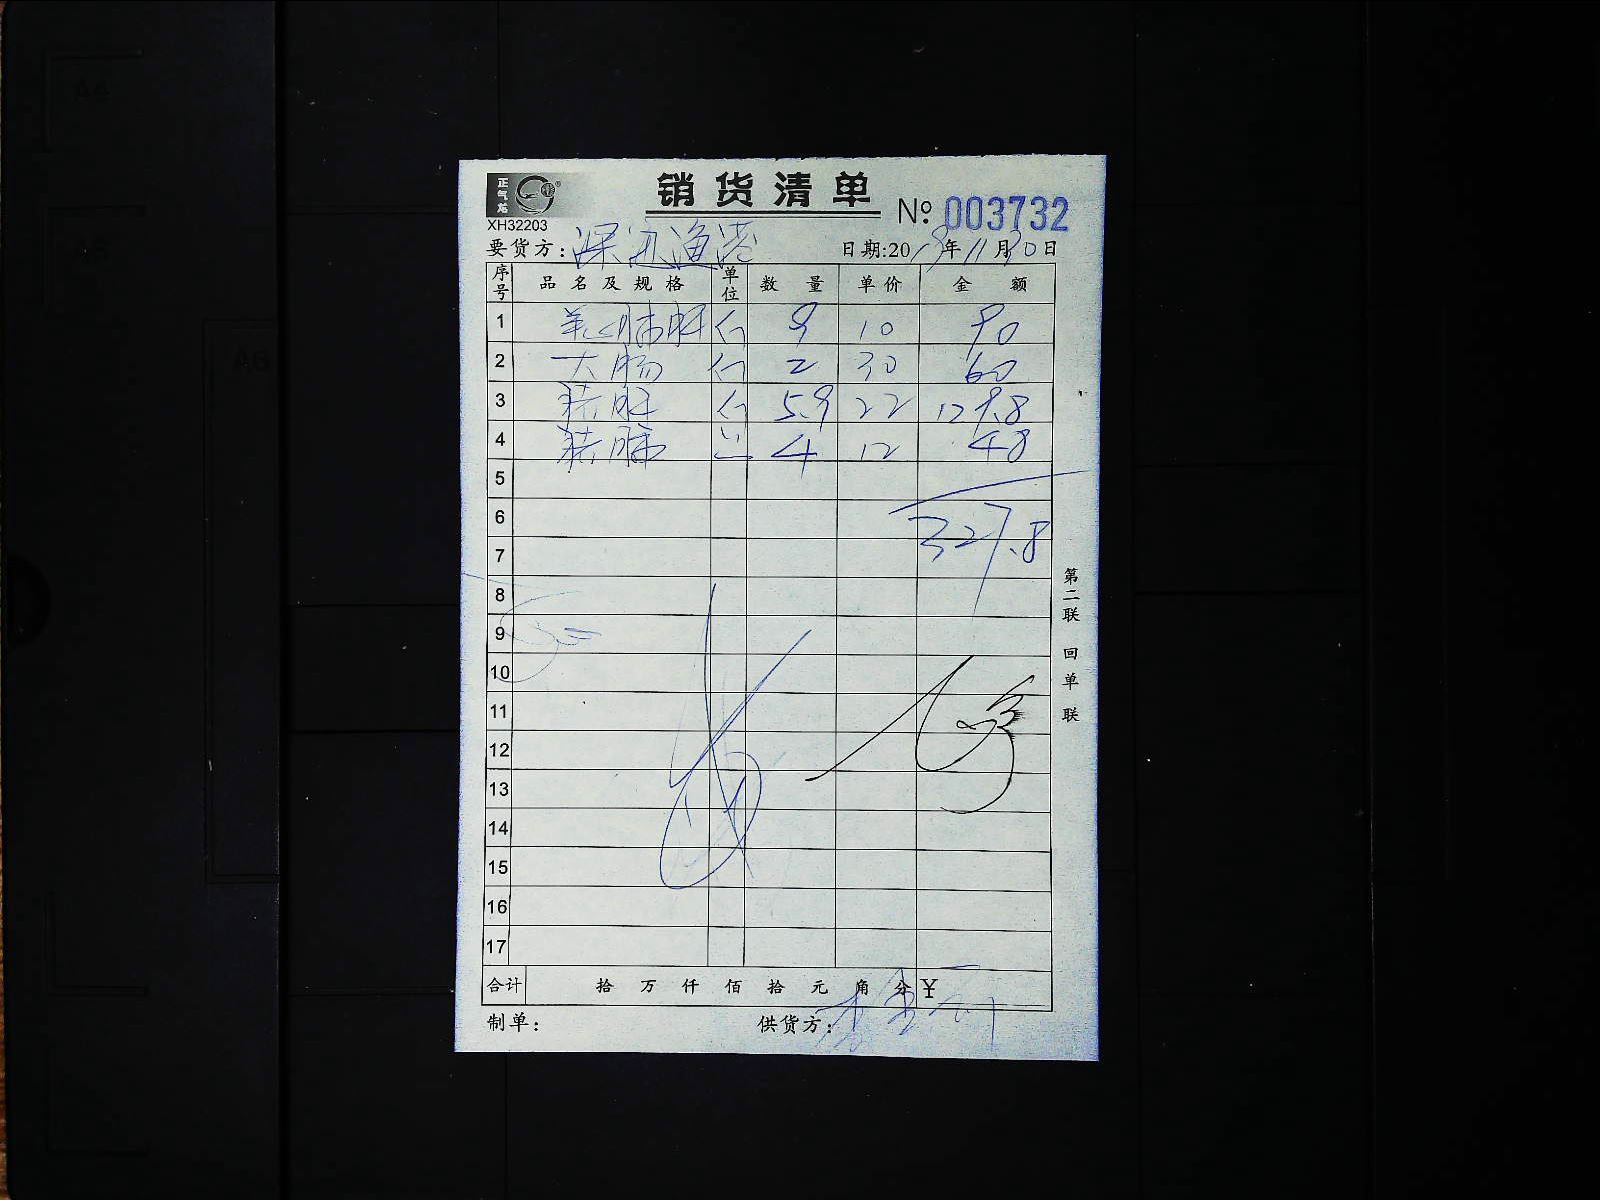 正气龙
销货清单
№ 003732
XH32203
要货方: 深 渔港 日期:2019年11月30日
序号 品名及规格 单位 数量 单价 金额
1 羊心肺肝 斤 9 10 90
2 大肠 斤 2 30 60
3 猪肝 斤 5.9 22 129.8
4 猪肺 4 12 48
5
6 327.8
7
8
9
10
11
12
13
14
15
16
17
第二联 回单联
合计 拾 万 仟 佰 拾 元 角 分 ¥
制单: 供货方: 李